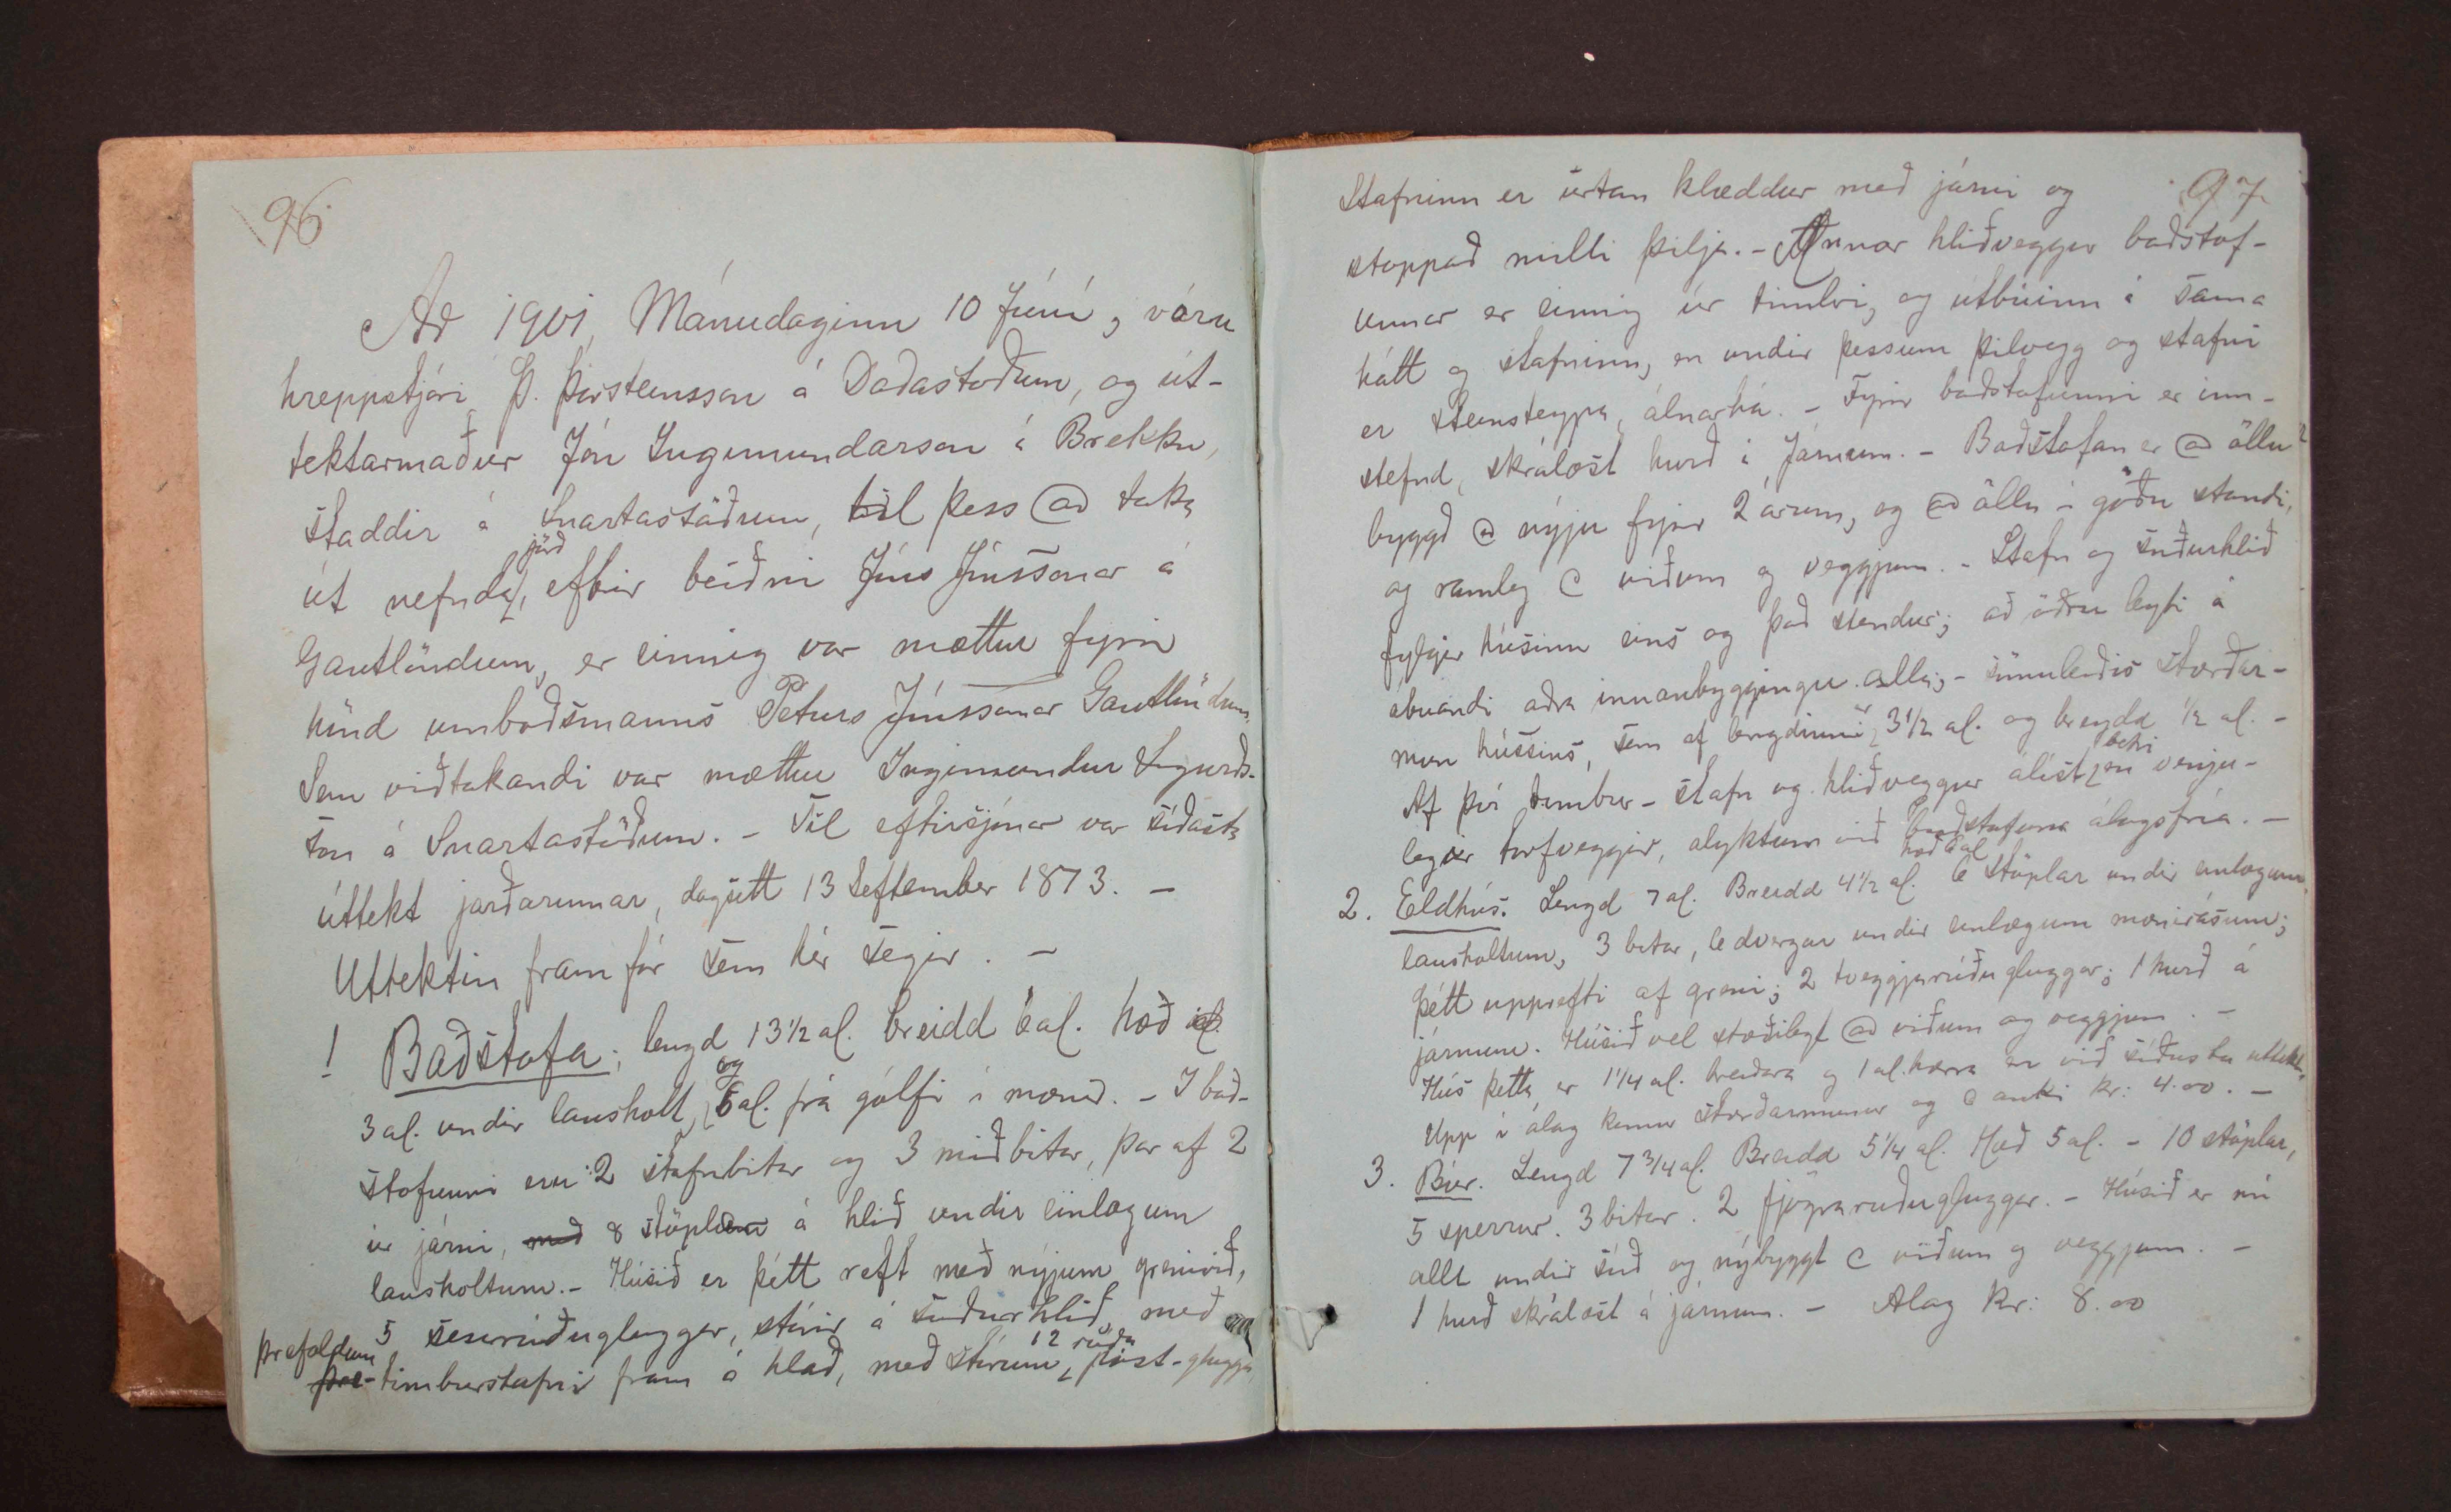 96
Ár 1901, Mánudaginn 10 Júní, voru
hreppstjóri Þ. Þorsteinsson á Daðastöðum, og út-
tektarmaður Jón Ingimundarson á Brekku,
staddir á Snartastöðum, til þess @ taka
út nefnda jörð, eftir beiðni Jóns Jónssonar á
Gautlöndum, er einnig var mættur fyrir
hönd umboðsmanns Péturs Jónssonar Gautlöndum.
Sem viðtakandi var mættur Ingimundur Sigurðs-
son á Snartastöðum. - Til eftirsjónar var síðasta
úttekt jarðarinnar, dagsett 13 September 1873. -
Uttektin fram fór sem hér segir. -
1 Baðstofa; lengd 13 1/2 al. breidd 6 al. hæð
3 al. undir lausholt, og 6 al. frá gólfi í mænir. - I bað-
stofunni eru 2 stafnbitar og 3 miðbitar, þar af 2
úr járni, með 8 stöplar á hlið undir einlægum
lausholtum. - Húsið er þétt reft með nýjum grenivið,
5 sexrúðugluggar, stórir á suðurhlið, með
þreföldum þre- timburstafni fram á hlað, með stórum 12 rúðu póst-glugga
97
Stafninn er utan klæddur með járni og
stoppað milli þilja. - Annar hliðveggur baðstof-
unnar er einnig úr timbri, og útbúinn á sama
hátt og stafninn, en undir þessum þilvegg og stafni
er steinsteypa, álnarhá. - Fyrir baðstofunni er inn-
stefnd, skrálæst hurð á járnum. - Baðstofan er @ öllu
byggð @ nýju fyrir 2 árum, og @ öllu í góðu standi,
og ramleg @ viðum og veggjum. - Stafn og suðurhlið
fylgir húsinu eins og það stendur; að öðru leyti á
ábúandi aðra innanbyggingu alla; - sömuleiðis stærðar-
mun hússins, sem af lengdinni er 3 1/2 al. og breydd 1/2 al. -
Af því timbur - stafn og hliðveggur álíst betri en venju-
legir torfveggir, alyktum við baðstofuna álagsfría. -
2. Eldhús. Lengd 7 al. Breidd 4 1/2 al. hæð 6 al 6 stöplar undir einlægum
lausholtum, 3 bitar, 6 dvergar undir einlægum mænirásum;
þétt upprefti af greni; 2 tveggjarúðu gluggar; 1 hurð á
járnum. Húsið vel stæðilegt @ viðum og veggjum. -
Hús þetta er 1 1/4 al. breiðara og 1 al. hærra en við síðustu úttekt.
Upp í álag kemur stærðarmunur og @ auki kr: 4.00. -
3. Búr. Lengd 7 3/4 al. Breidd 5 1/4 al. Hæð 5 al. - 10 stöplar,
5 sperrur. 3 bitar. 2 fjögra rúðu gluggar. - Húsið er nú
allt undir súð og nýbyggt @ viðum og veggjum. -
1 hurð skrálæst á járnum. - Alag Kr: 8.00